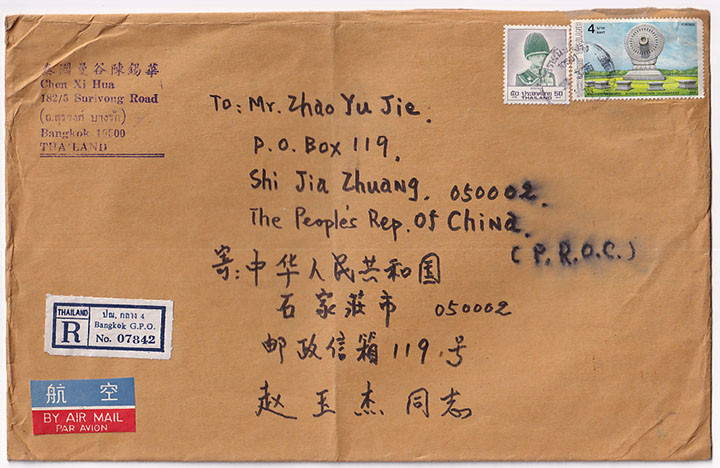 泰國曼谷陳錫華
Chen Xi Hua
182/5 Surivong Road
(ถ.สุรวงศ์ บางรัก)
Bangkok 10500
THAILAND
4 บาท
BAHT
๕๐ ประเทศไทย 50
THAILAND
To: Mr. Zhao Yu Jie.
P.O. Box 119,
Shi Jia Zhuang, 050002.
The People's Rep. Of China.
(P.R.O.C.)
寄:中华人民共和国
石家莊市 050002
邮政信箱119号
赵玉杰同志
THAILAND
R
ปณ. กลาง 4
Bangkok G.P.O.
No. 07842
航空
BY AIR MAIL
PAR AVION